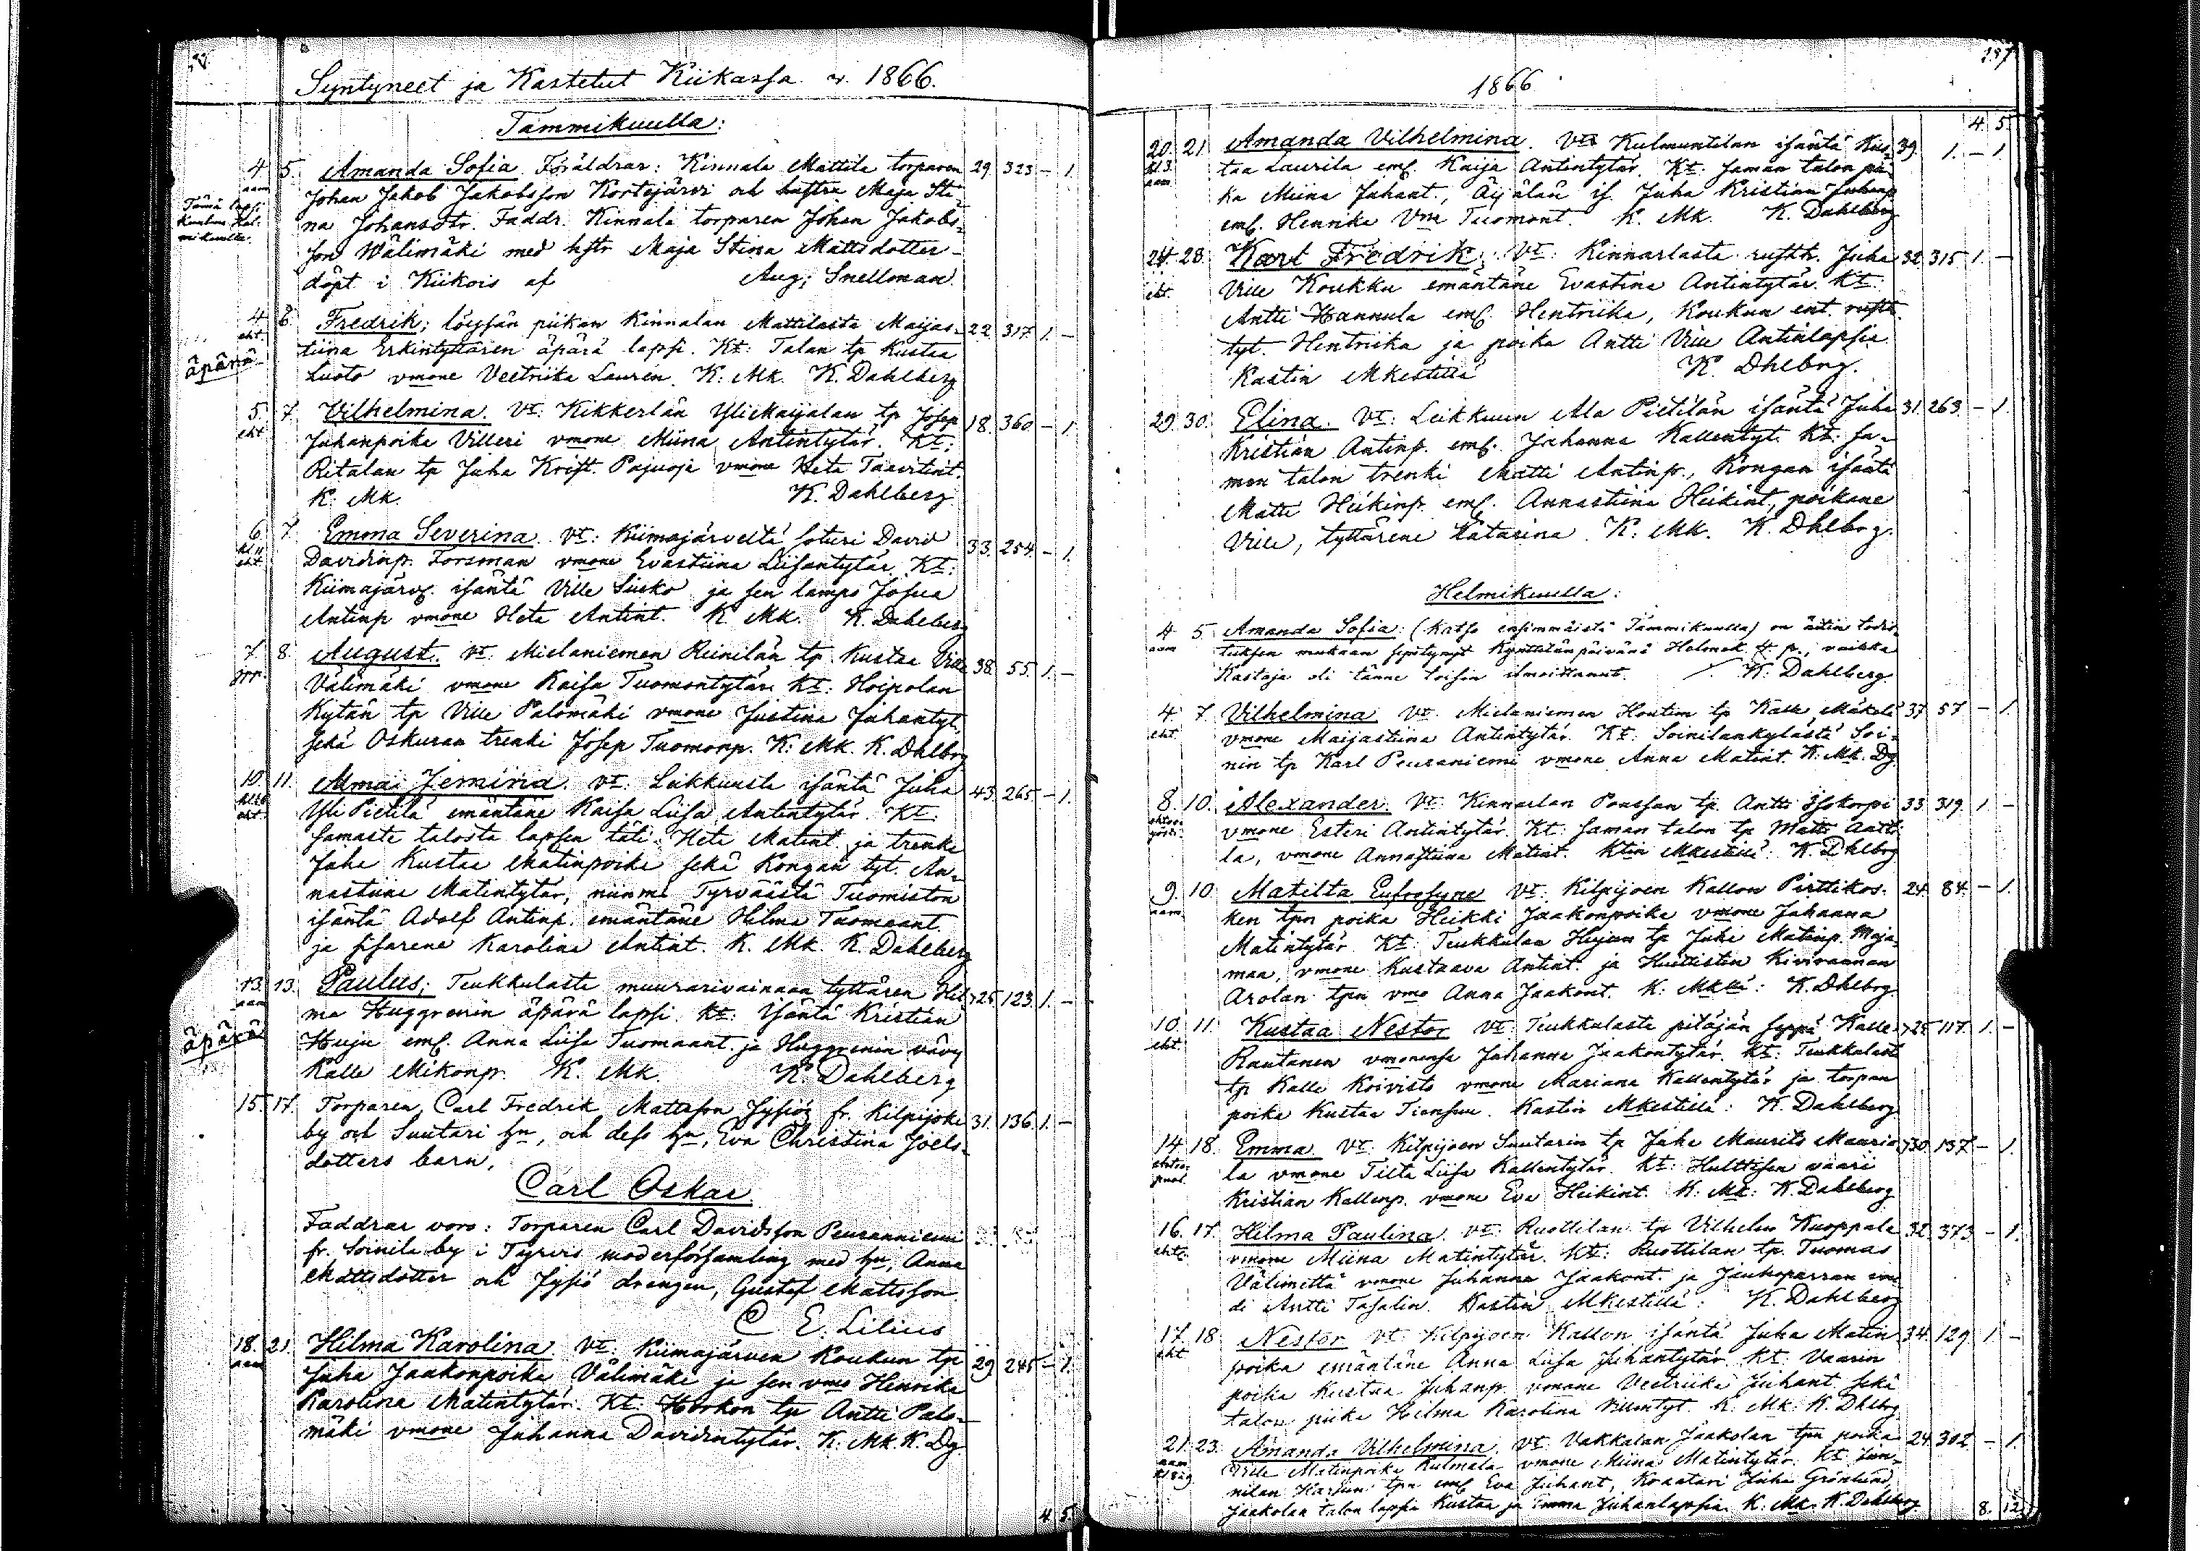 Syntyneet ja Kastetut Kiikassa v. 1866.
Tammikuulla:
4 5. Amanda Sofia. Föräldrar: Kinnala Mattila torparen 29. 323 – 1.
aam Johan Jakob Jakobsson Kortejärvi och hustru Maja Sti-
Tämä lapsi na Johansdtr. Faddr. Kinnala torparen Johan Jakobs-
son Wälimäki med hstr Maja Stina Mattsdotter –
döpt i Kiikois af Aug; Snellman.
4 6. Fredrik; löysän piikan Kinnalan Mattilasta Maijas- 22. 317. 1. –
eht. tiina Erkintyttären äpärä lapsi. Kt: Talan tp Kustaa
äpärä Luoto vmone Veetriika Lauren. K: Mk. K. Dahlberg
5. 7. Vilhelmina. Vt: Kikkerlän Yliekaijalan tp Josep 18. 360 – 1.
eht Juhanpoika Villeri vmone Miina Antintytär. Kt:
Ritalan tp Juha Krist. Pajuoja vmone Heta Taavitint.
K: Mk. K. Dahlberg
6. 7. Emma Severina. Vt: Kiimajärveltä soturi David 33. 254 – 1.
eht Davidinp. Forsman vmone Evastiina Liisantytär. Kt:
Kiimajärv. isäntä Ville Siisko ja sen lampo Josua
Antinp vmone Heta Antint. K Mk. K. Dahlberg
7. 8. August. Vt: Mielaniemen Reinilän tp Kustaa Ville 38. 55. 1. –
Välimäki vmone Kaisa Tuomontytär. Kt: Hoipolan
Kytän tp Ville Palomäki vmone Justina Juhantyt.
sekä Oskuran trenki Josep Tuomonp. K: Mk. K. Dhlbrg
10. 11. Alma Jemina. Vt: Leikkuusta isäntä Juha 43. 265 – 1.
eht. Yli Pietilä emäntäne Kaisa Liisa Antintytär. Kt:
samasta talosta lapsen täti Heta Matint. ja trenki
Juha Kustaa Matinpoika sekä Kongan tyt. An-
nastiina Matintytär, niinmö Tyrväästä Tuomiston
isäntä Adolf Antinp. emäntäne Hilma Tuomaant.
ja sisarene Karolina Antint. K. Mk. K. Dahlberg
13. 13. Paulus; Teukkulasta muurarivainaan tyttären Hel- 25. 123. 1. –
aam ma Huggrenin äpärä lapsi. Kt: Isäntä Kristian
äpärä Huju ems. Anna Liisa Tuomaant. ja Huggrenin vävy
Kalle Mikonp. K. Mk. K. Dahlberg
15. 17. Torparen Carl Fredrik Mattsson Jysiö fr. Kilpijoki 31. 136. 1. –
by och Suutari hn, och dess hu, Eva Christina Joels-
dotters barn,
Carl Oskar
Faddrar voro: Torparen Carl Davidsson Peuranniemi
fr. Soinila by i Tyrvis moderförsamling med hu, Anna
Mattsdotter och Jysiö drengen, Gustaf Mattsson.
C. E. Lilius
18. 21. Hilma Karolina. Vt: Kiimajärven Koukun tp 29 245 – 1.
aam Juha Jaakonpoika Välimäki ja sen vmo Henrika
Karolina Matintytär. Kt: Horkon tp Antti Palo-
mäki vmone Juhanna Davidintytär. K: Mk. K. Dg.
4 5
137
1866
4. 5.
20. 21. Amanda Vilhelmina. Vt: Kulmuntilan isäntä Kus- 39. 1. – 1.
aam taa Laurila ems. Kaija Antintytär. Kt: saman talon pii-
ka Miina Juhant., Äijälän is. Juha Kristian Juhanp.
ems. Henrika Vm Tuomont. K. Mk. K. Dahlberg
24. 28. Karl Fredrik; Vt: Kinnarlasta rustk. Juha 32. 315. 1. –
eht. Ville Koukku emäntäne Evastina Antintytär. Kt:
Antti Hannula ems. Hentriika, Koukun ent. rustk.
tyt. Hentriika ja poika Antti Ville Antinlapsia.
Kastin Mkestillä K. Dhlbrg.
29. 30. Elina. Vt: Leikkuun Ala Pietilän isäntä Juha 31. 263. – 1.
Kristian Antinp. ems. Juhanna Kallentyt. Kt: sa-
man talon trenki Matti Antinp., Kongan isäntä
Matti Heikinp. ems. Annastiina Heikint., poikane
Ville, tyttärene Katarina. K: Mk. K. Dhlbrg.
Helmikuulla:
4 5. Amanda Sofia: (katso ensimmäistä Tammikuulla) on äitin todis-
aam tuksen mukaan syntynyt Kynttilänpäivänä Helmok. 4 p., vaikka
Kastaja oli tänne toisin ilmoittanut. K. Dahlberg.
4. 7. Vilhelmina. Vt: Mielaniemen Hontin tp Kalle Mäkelä 37. 57 – 1.
eht. vmone Maijastiina Antintytär. Kt: Soinilankylästä Soi-
nin tp Karl Peuraniemi vmone Anna Matint. K: Mk. Dg
8. 10. Alexander. Vt: Kinnarlan Poussan tp. Antti Isokorpi 33. 319. 1. –
vmone Esteri Antintytär. Kt: saman talon tp Matti Antti-
la, vmone Annastiina Matint. Ktin Mkestillä: K. Dhlbrg
9. 10. Matilta Eufrosyne Vt: Kilpijoen Kallon Pirttikos- 24. 84. – 1.
aam. ken tpn poika Heikki Jaakonpoika vmone Juhanna
Matintytär. Kt: Teukkulan Hujun tp Juha Matinp. Maja-
maa, vmone Kustaava Antint. ja Huittistin Kiviraannan
Arolan tpn vmo Anna Jaakont. K: Mkllä: K. Dhlbrg.
10. 11. Kustaa Nestor Vt: Teukkulasta pitäjän seppä Kalle 25. 117. 1. –
eht. Rautanen vmonensa Juhanna Jaakontytär. Kt: Teukkulasta
tp Kalle Koivisto vmone Mariana Kallentytär ja torpan
poika Kustaa Tiensuu. Kastin Mkestillä: K. Dahlberg
14. 18. Emma. Vt: Kilpijoen Suutarin tp Juha Maurits Maurio- 30. 137. – 1.
la vmone Tilta Liisa Kallentytär. Kt: Hulttisen vaari
Kristian Kallenp. vmone Eva Heikint. K: Mk: K. Dahlberg
16. 17. Hilma Paulina. Vt: Ruottilan tp Vilhelm Kuoppala 32. 373. – 1.
eht. vmone Miina Matintytär. Kt: Ruottilan tp. Tuomas
Välimettä vmone Juhanna Jaakont. ja Jauhoparran
Antti Tasalin. Kastin Mkestillä: K. Dahlberg
17. 18. Nestor Vt: Kilpijoen Kallon isäntä Juha Matin 34. 129. 1. –
eht poika emäntäne Anna Liisa Juhantytär. Kt: Vaarin
poika Kustaa Juhanp. vmone Veetriika Juhant. sekä
talon piika Hilma Karolina K: Mk: K. Dhlbrg.
21. 23. Amanda Vilhelmina. Vt: Vakkalan Jaakolan tpn poika 24. 302. – 1.
aam Ville Matinpoika Kulmala vmone Miina Matintytär. Kt:
nilan Harjun tpn ems. Eva Juhant., Kraatari Juha Grönlund
Jaakolan talon lapsia Kustaa ja Emma Juhanlapsia. K. Mk. K. Dahlberg. 8. 12.